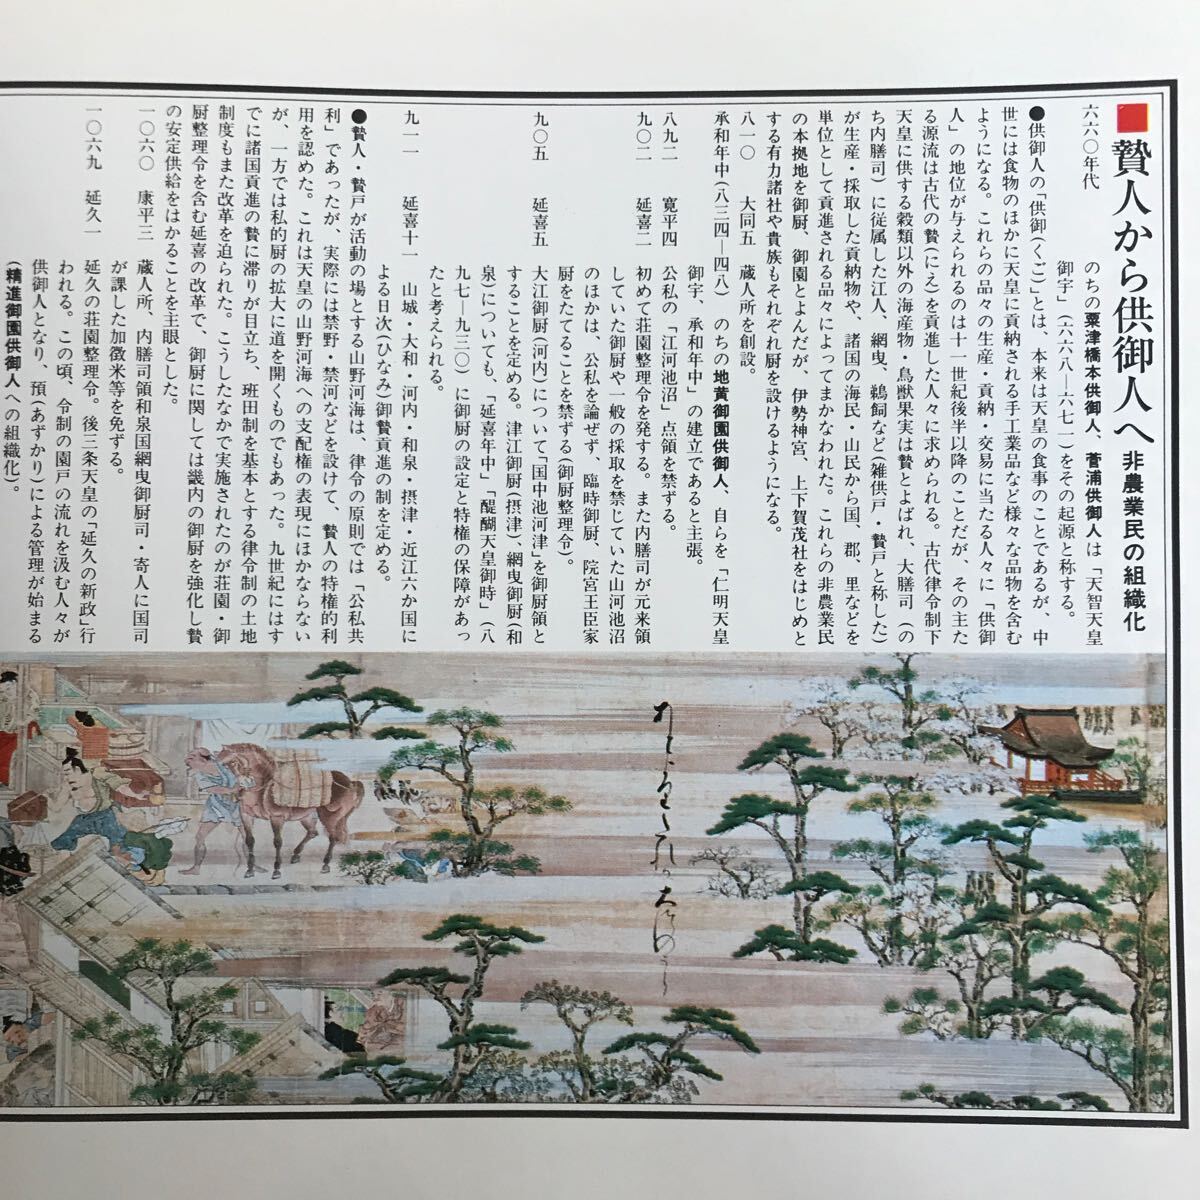 ■贄人から供御人へ 非農業民の組織化
六六〇年代 のちの粟津橋本供御人、菅浦供御人は「天智天皇
御宇」(六六八―六七一)をその起源と称する。
●供御人の「供御(くご)」とは、本来は天皇の食事のことであるが、中
世には食物のほかに天皇に貢納される手工業品など様々な品物を含む
ようになる。これらの品々の生産・貢納・交易に当たる人々に「供御
人」の地位が与えられるのは十一世紀後半以降のことだが、その主た
る源流は古代の贄(にえ)を貢進した人々に求められる。古代律令制下
天皇に供する穀類以外の海産物・鳥獣果実は贄とよばれ、大膳司(の
ち内膳司)に従属した江人、網曳、鵜飼など(雑供戸・贄戸と称した)
が生産・採取した貢納物や、諸国の海民・山民から国、郡、里などを
単位として貢進される品々によってまかなわれた。これらの非農業民
の本拠地を御厨、御園とよんだが、伊勢神宮、上下賀茂社をはじめと
する有力諸社や貴族もそれぞれ厨を設けるようになる。
八一〇 大同五 蔵人所を創設。
承和年中(八三四―四八) のちの地黄御園供御人、自らを「仁明天皇
御宇 承和年中」の建立であると主張。
八九二 寛平四 公私の「江河池沼」点領を禁ずる。
九〇二 延喜二 初めて荘園整理令を発する。また内膳司が元来領
していた御厨や一般の採取を禁じていた山河池沼
のほかは、公私を論ぜず、臨時御厨、院宮王臣家
厨をたてることを禁ずる(御厨整理令)。
九〇五 延喜五 大江御厨(河内)について「国中池河津」を御厨領と
することを定める。津江御厨(摂津)、網曳御厨(和
泉)についても、「延喜年中」「醍醐天皇御時」(八
九七―九三〇)に御厨の設定と特権の保障があっ
たと考えられる。
九一一 延喜十一 山城・大和・河内・和泉・摂津・近江六か国に
よる日次(ひなみ)御贄貢進の制を定める。
●贄人・贄戸が活動の場とする山野河海は、律令の原則では「公私共
利」であったが、実際には禁野・禁河などを設けて、贄人の特権的利
用を認めた。これは天皇の山野河海への支配権の表現にほかならない
が、一方では私的厨の拡大に道を開くものでもあった。九世紀にはす
でに諸国貢進の贄に滞りが目立ち、班田制を基本とする律令制の土地
制度もまた改革を迫られた。こうしたなかで実施されたのが荘園・御
厨整理令を含む延喜の改革で、御厨に関しては畿内の御厨を強化し贄
の安定供給をはかることを主眼とした。
一〇六〇 康平三 蔵人所、内膳司領和泉国網曳御厨司・寄人に国司
が課した加徴米等を免ずる。
一〇六九 延久一 延久の荘園整理令。後三条天皇の「延久の新政」行
われる。この頃、令制の園戸の流れを汲む人々が
供御人となり、預(あずかり)による管理が始まる
(精進御園供御人への組織化)。